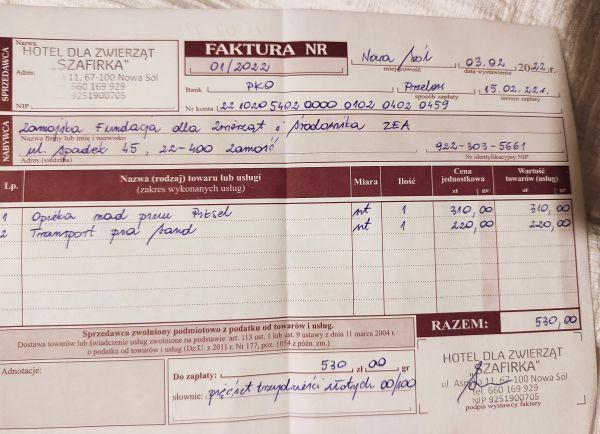 SPRZEDAWCA
Nazwa: HOTEL DLA ZWIERZĄT
"SZAFIRKA"
Adres: 11, 67-100 Nowa Sól
660 169 929
NIP 9251900705
FAKTURA NR
01/2022
Nowa Sól 03.02 2022 r.
miejscowość data wystawienia
Bank PKO
Przelew 15.02.22 r.
sposób zapłaty termin zapłaty
Nr konta 22 1020 5402 0000 0102 0402 0459
NABYWCA
Zamojska Fundacja dla Zwierząt i Środowiska ZEA
Nazwa firmy lub imię i nazwisko
ul. 45, 22-400 Zamość 922-303-5661
Adres (siedziba) Nr identyfikacyjny NIP
Lp. Nazwa (rodzaj) towaru lub usługi (zakres wykonanych usług) Miara Ilość Cena jednostkowa zł gr Wartość towarów (usług) zł gr
1 Opieka nad psem 1 310,00 310,00
2 Transport psa 1 220,00 220,00
Sprzedawca zwolniony podmiotowo z podatku od towarów i usług.
Dostawa towarów lub świadczenie usług zwolnione na podstawie art. 113 ust. 1 lub ust. 9 ustawy z dnia 11 marca 2004 r.
o podatku od towarów i usług (Dz.U. z 2011 r. Nr 177, poz. 1054 z późn. zm.)
RAZEM: 530,00
Adnotacje:
Do zapłaty: 530 zł 00 gr
słownie: pięćset trzydzieści złotych 00/100
HOTEL DLA ZWIERZĄT
"SZAFIRKA"
ul. 11, 67-100 Nowa Sól
tel. 660 169 929
NIP 9251900705
podpis wystawcy faktury